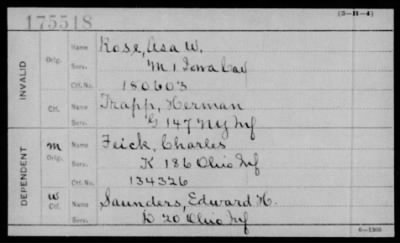 175518
(3-H-4)
INVALID
Orig. Name Rose, Asa W.
Serv. M 1 Iowa Cav
Ctf. No. 180603
Ctf. Name Trapp, Herman
Serv. G 147 NY Inf
DEPENDENT
M Orig. Name Feick, Charles
Serv. K 186 Ohio Inf
Ctf. No. 134326
W Ctf. Name Saunders, Edward H.
Serv. D 20 Ohio Inf